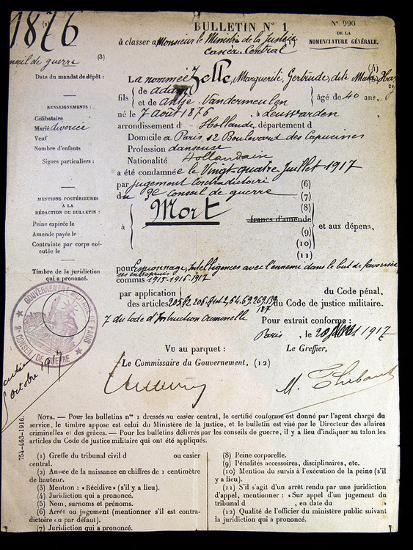 1876
BULLETIN N° 1
N° 990
DE LA
NOMENCLATURE GÉNÉRALE.
à classer à Monsieur le Ministre de la Justice
Casier Central
de guerre
(3)
(4)
Date du mandat de dépôt :
La nommée Zelle, Marguerite, Gertrude, dite Mata Hari
fils de Adam
et de Antje Vandermeulen âgé de 40 ans
RENSEIGNEMENTS :
né le 7 août 1876 à Leuwarden
Célibataire
arrondissement d Hollande, département d
Marié divorcée
Domicile à Paris 12 Boulevard des Capucines
Veuf
Profession danseuse
Nombre d'enfants
Nationalité Hollandaise
Signes particuliers :
a été condamnée le Vingt-quatre Juillet 1917
par jugement contradictoire (6)
du 3e Conseil de guerre (7)
MENTIONS POSTÉRIEURES
À LA
RÉDACTION DU BULLETIN :
à Mort (8)
francs d'amende
(9)
et aux dépens,
(10)
(11)
Peine expirée le
Amende payée le
Contrainte par corps exécutée le
Timbre de la juridiction
qui a prononcé.
pour Espionnage, Intelligences avec l'ennemi dans le but de favoriser
ses entreprises
commis 1915-1916-1917
par application
des articles 205
du Code pénal,
du Code de justice militaire.
7 du Code d'Instruction Criminelle
Pour extrait conforme :
Paris, le 1917
GOUVERNEMENT
CONSEIL DE GUERRE
PARIS
octobre
Vu au parquet :
Le Greffier,
Le Commissaire du Gouvernement, (12)
NOTA. — Pour les bulletins n° 1 dressés au casier central, le certifié conforme est donné par l'agent chargé du
service, le timbre apposé est celui du Ministère de la justice, et le bulletin est visé par le Directeur des affaires
criminelles et des grâces. — Pour les bulletins délivrés par les conseils de guerre, il y a lieu d'indiquer au talon les
articles du Code de justice militaire qui ont été appliqués.
754-463-1916.
(1) Greffe du tribunal civil d ou casier
central.
(2) Année de la naissance en chiffres de 1 centimètre
de hauteur.
(3) Mention : «Récidive» (s'il y a lieu).
(4) Juridiction qui a prononcé.
(5) Nom, surnoms et prénoms.
(6) Arrêt ou jugement (mentionner s'il est contradictoire ou par défaut).
(7) Juridiction qui a prononcé.
(8) Peine corporelle.
(9) Pénalités accessoires, disciplinaires, etc.
(10) Mention du sursis à l'exécution de la peine (s'il
y a lieu).
(11) S'il s'agit d'un arrêt rendu par une juridiction
d'appel, mentionner : «Sur appel d'un jugement du
tribunal d , en date du »
(12) Qualité de l'officier du ministère public suivant
la juridiction qui a prononcé.